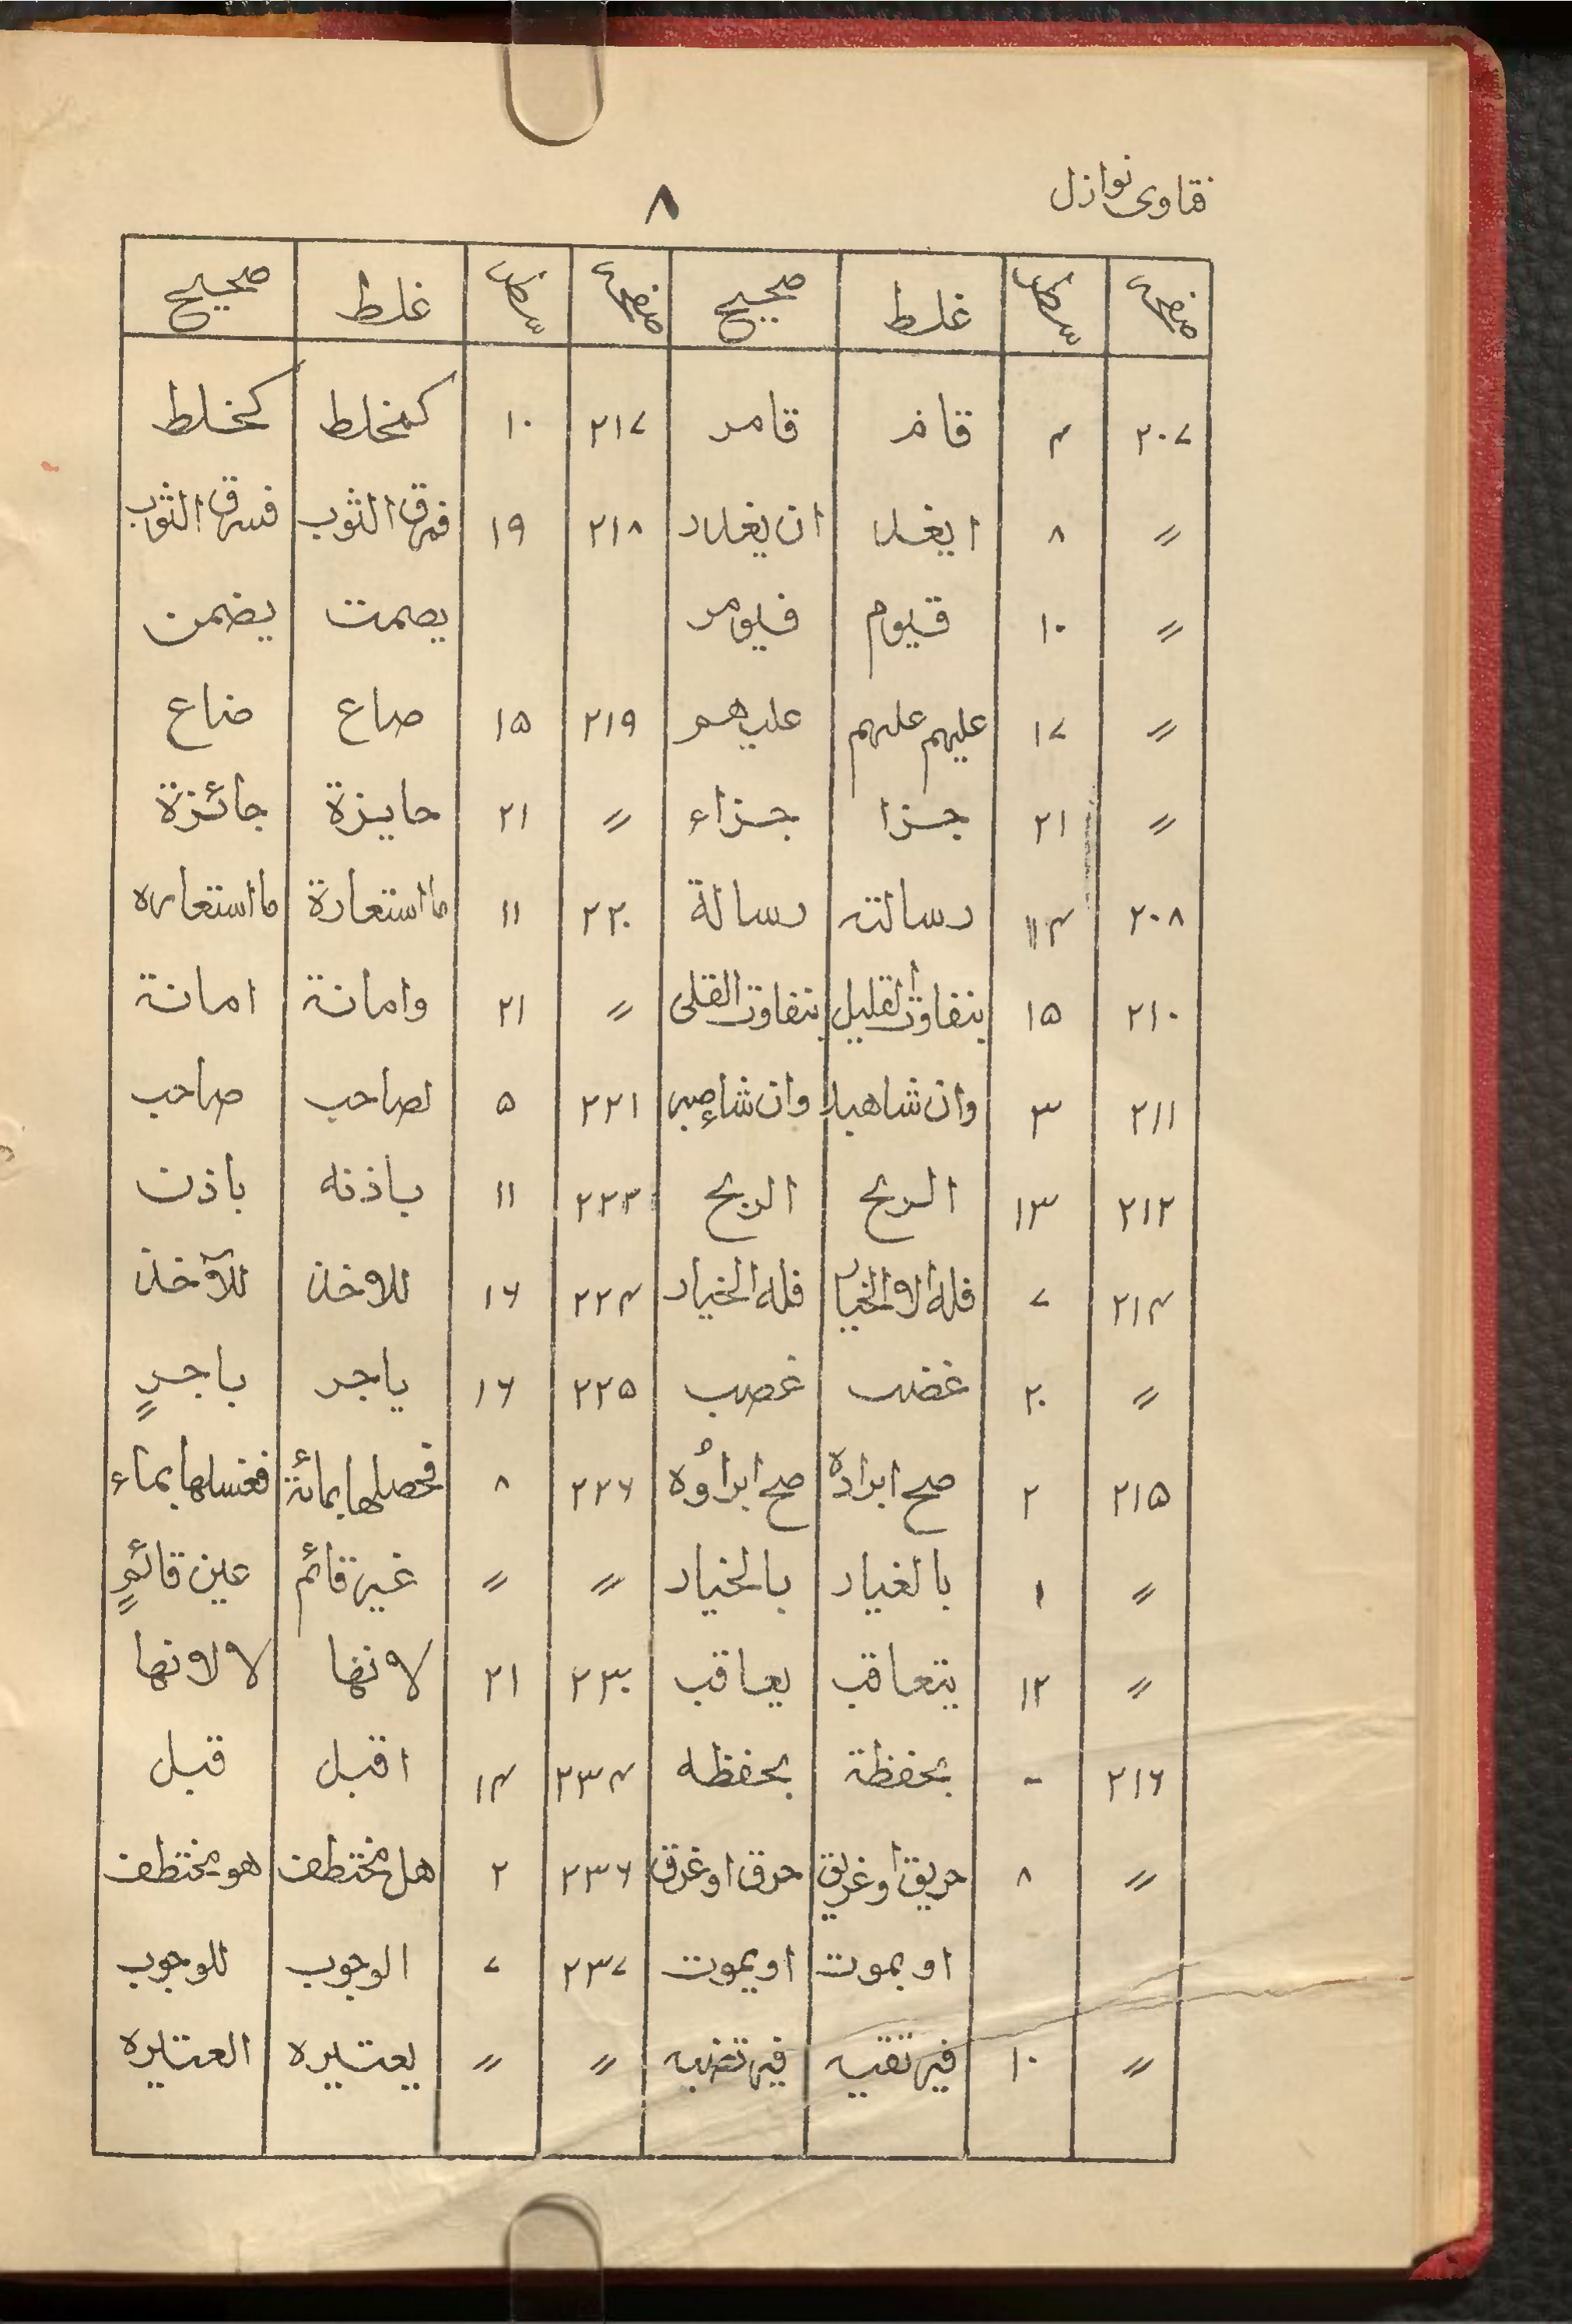 فتاوی نوازل
٨
صفحہ سطر غلط صحیح صفحہ سطر غلط صحیح
۲۰۷ ۴ قام قامر ۲۱۷ ۱۰ كمخلط كخلط
〃 ۸ ايغلا ان يغلاد ۲۱۸ ۱۹ فمرق الثوب فسرق الثوب
〃 ۱۰ قيوم فيومر يصمت يضمن
〃 ۱۷ عليهم عليهم عليهم ۲۱۹ ۱۵ صاع ضاع
〃 ۲۱ جزا جزاء 〃 ۲۱ حايزة جائزة
۲۰۸ ۱۴ رسالته رسالة ۲۲۰ ۱۱ ما استعارة ما استعاره
۲۱۰ ۱۵ يتفاوت القليل يتفاوت القلى 〃 ۲۱ وامانة امانة
۲۱۱ ۳ وان شاهبلا وان شاء صبر ۲۲۱ ۵ لصاحب صاحب
۲۱۲ ۱۳ الربح الربح ۲۲۳ ۱۱ باذنه باذن
۲۱۴ ۷ فله الا الخيار فله الخيار ۲۲۴ ۱۶ للاخذ للآخذ
〃 ۲۰ غضب غصب ۲۲۵ ۱۶ ياجر باجرٍ
۲۱۵ ۲ صح ابرادة صح ابراؤه ۲۲۶ ۸ فحصلها بمائة فغسلها بماء
〃 ۱ بالغيار بالخيار 〃 〃 غير قائم عين قائمٍ
〃 ۱۲ يتعاقب يعاقب ۲۳۰ ۲۱ لانها لا لانها
۲۱۶ - بحفظة بحفظه ۲۳۴ ۱۴ اقبل قبل
〃 ۸ حريق او غريق حرق او غرق ۲۳۶ ۲ هل مختطف هو مختطف
او بموت او يموت ۲۳۷ ۷ الوجوب للوجوب
〃 ۱۰ 〃 〃 يعتبره العتبره